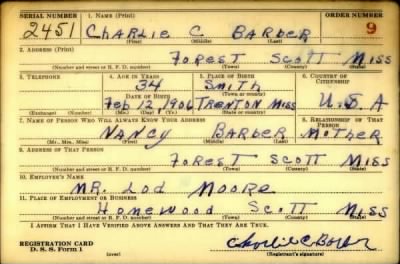 SERIAL NUMBER 1. NAME (Print) ORDER NUMBER
2451 CHARLIE C BARBER 9
(First) (Middle) (Last)
2. ADDRESS (Print)
FOREST SCOTT MISS
(Number and street or R. F. D. number) (Town) (County) (State)
3. TELEPHONE 4. AGE IN YEARS 5. PLACE OF BIRTH 6. COUNTRY OF CITIZENSHIP
34 SMITH
DATE OF BIRTH (Town or county)
Feb 12, 1906 TRENTON MISS U.S.A
(Exchange) (Number) (Mo.) (Day) (Yr.) (State or country)
7. NAME OF PERSON WHO WILL ALWAYS KNOW YOUR ADDRESS 8. RELATIONSHIP OF THAT PERSON
NANCY BARBER MOTHER
(Mr., Mrs., Miss) (First) (Middle) (Last)
9. ADDRESS OF THAT PERSON
FOREST SCOTT MISS
(Number and street or R. F. D. number) (Town) (County) (State)
10. EMPLOYER'S NAME
MR. LOD MOORE
11. PLACE OF EMPLOYMENT OR BUSINESS
HOMEWOOD SCOTT MISS
(Number and street or R. F. D. number) (Town) (County) (State)
I AFFIRM THAT I HAVE VERIFIED ABOVE ANSWERS AND THAT THEY ARE TRUE.
REGISTRATION CARD Charlie C Barber
D. S. S. Form 1 (Registrant's signature)
(over)